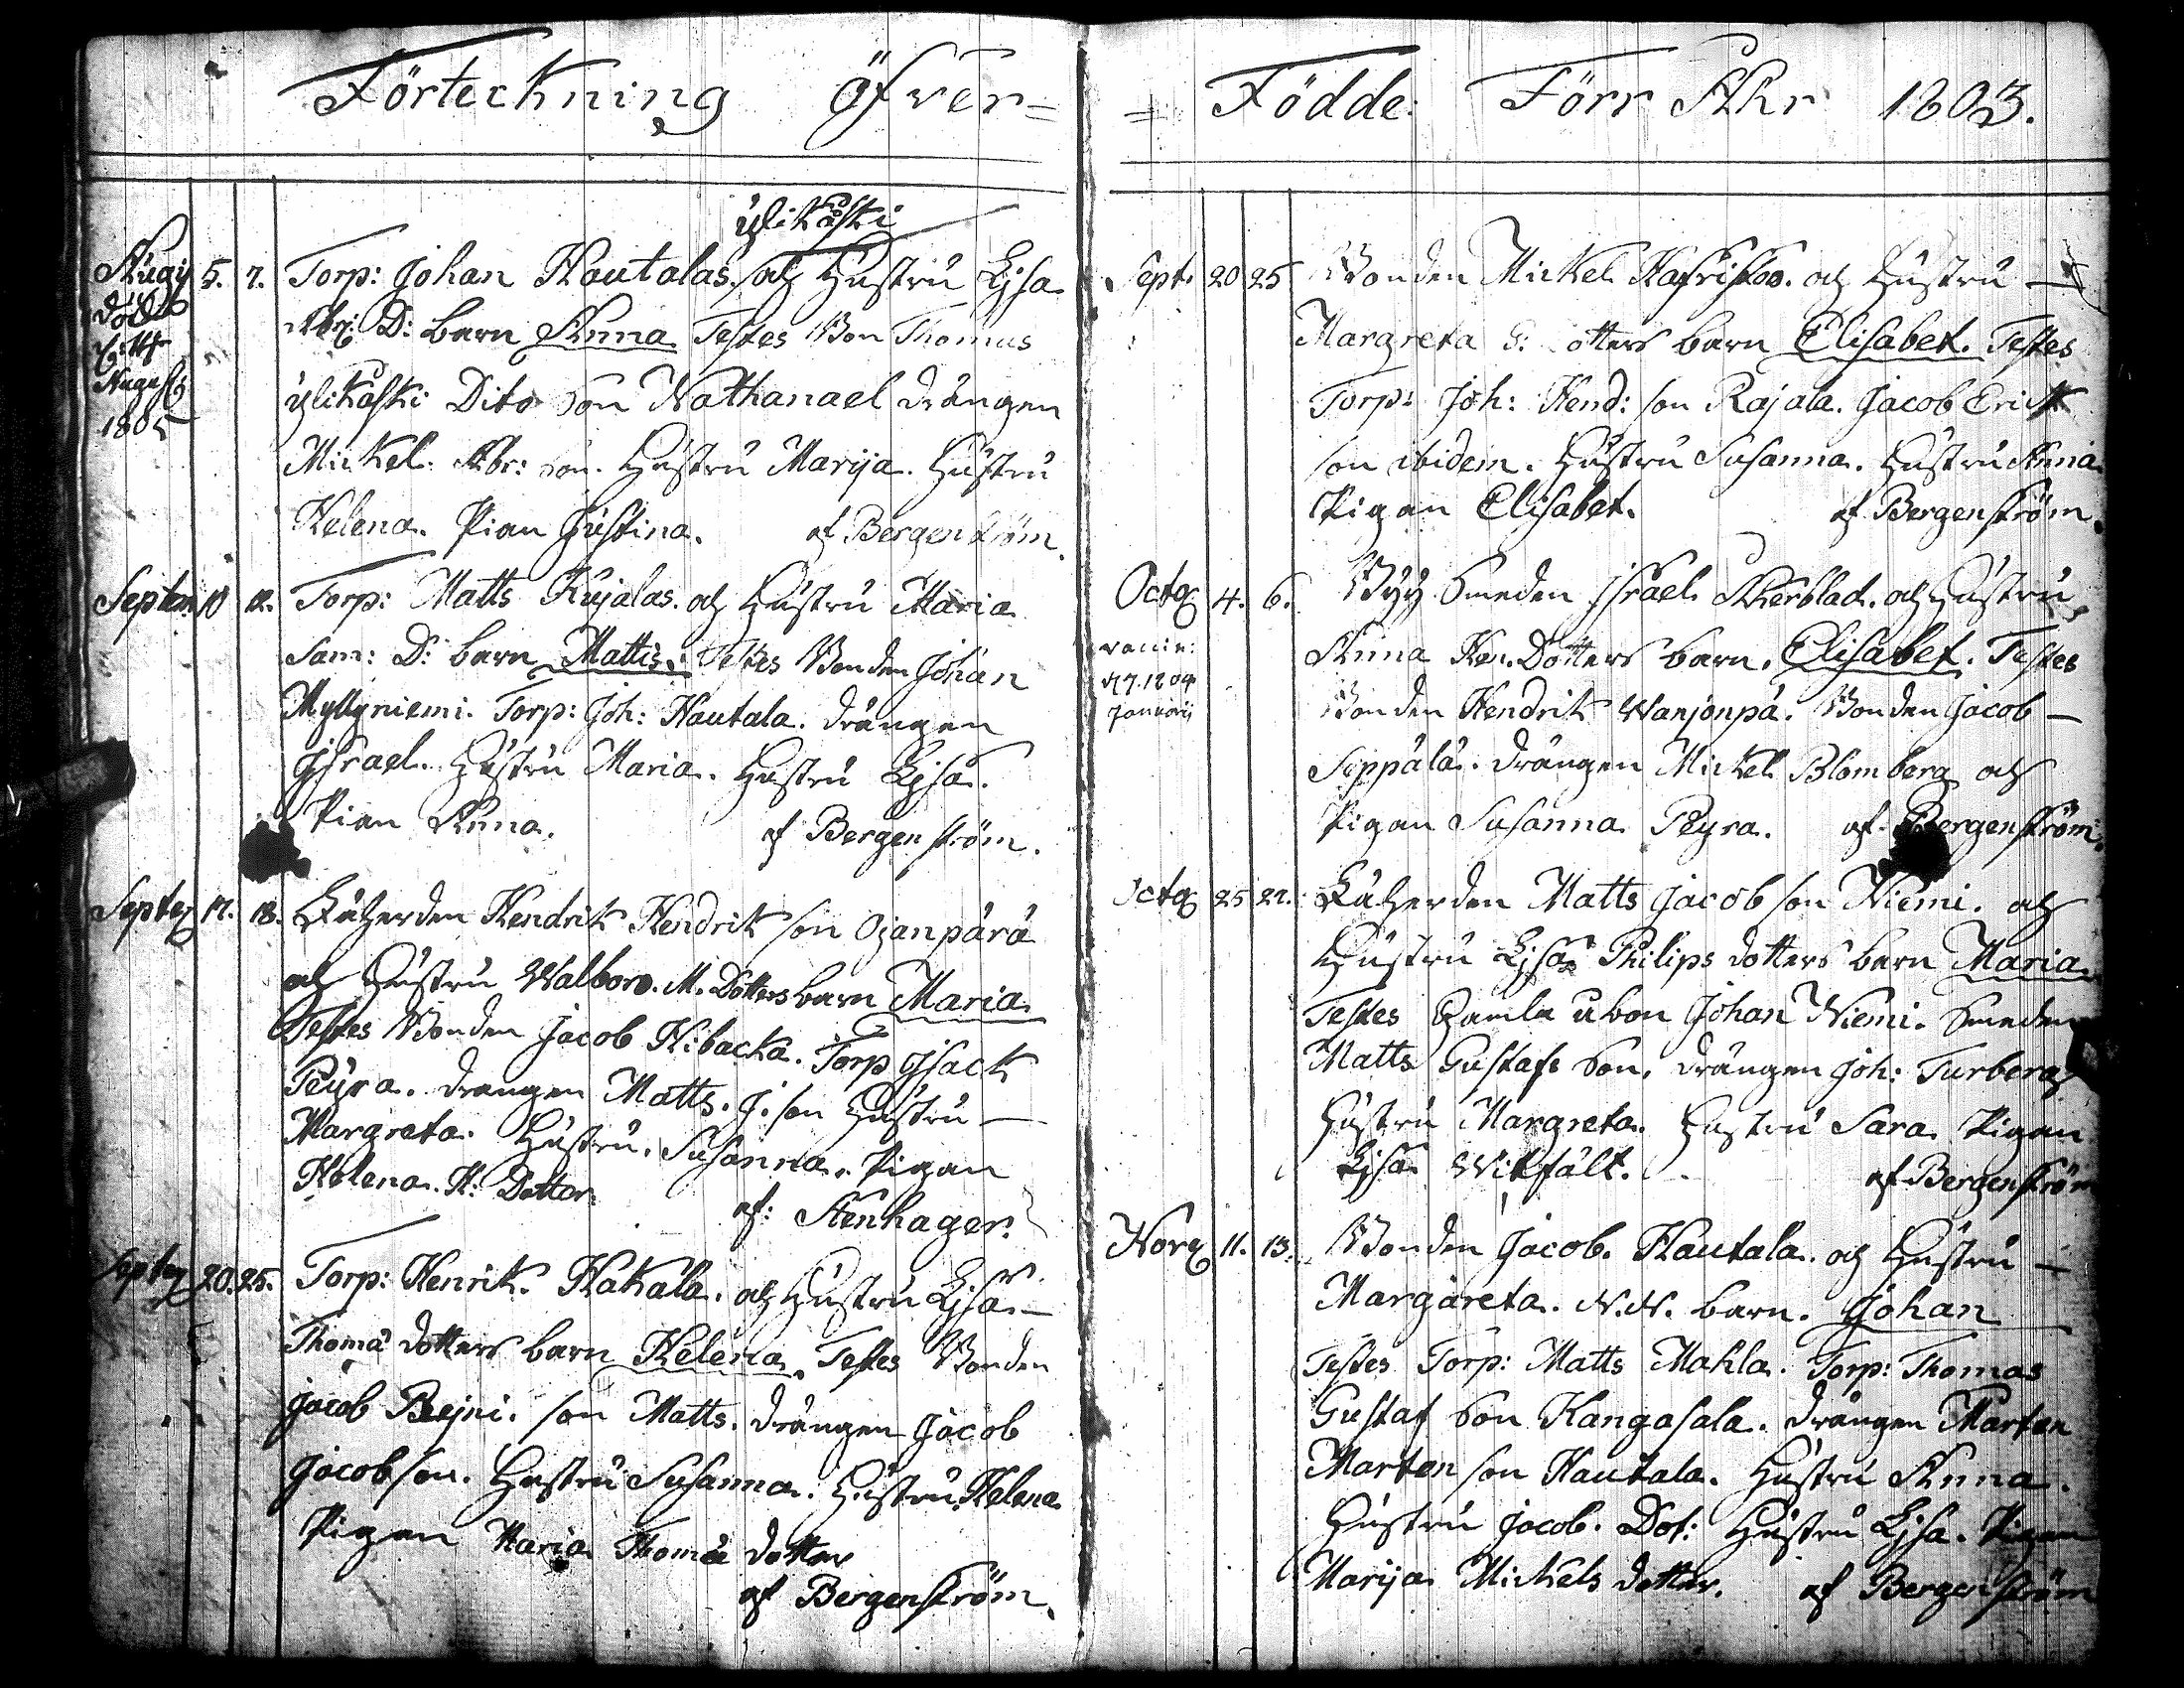 Förteckning öfver=
Ylikåski
Augij 5. 7. Torp: Johan Hautalas. och Hustru Lisa
död
Abr: D: barn Anna Testes Bon Thomas
August
Ylikåski Dito son Nathanael drängen
1805
Mickel Abr: son. Hustru Marija. Hustru
Helena. Pian Justina. af Bergenström.
Septem 10 12. Torp: Matts Kujalas. och Hustru Maria
Sam: D: barn Mattis. Testes Bonden Johan
Myllyniemi. Torp: Joh: Hautala. drängen
Jsrael. Hustru Maria. Hustru Lisa.
Pian Anna. af Bergenström.
Septeg 17. 18. Hendrik Hendrik son Ojanpärä
och Hustru Walboro. M. Dotters barn Maria
Testes Bonden Jacob Kibacka. Torp Jsack
Peyra. drängen Matts. J. son Hustru —
Margreta. Hustru. Susanna. Pigan
Helena. H: Dotter af: Stenhager.
Septeg 20. 25. Torp: Henrik. Hakala. och Hustru Lisa. —
Thoma dotters barn Helena. Testes Bonden
Jacob Bejni. son Matts. drängen Jacob
Jacob son. Hustru Susanna. Hustru Helena
Pigan Maria Thoma dotter
af Bergenström.
= Födde: Förr Åhr 1803.
Sept. 20 25 Bonden Mickel och Hustru —
Margreta dotters barn Elisabet. Testes
Torp: Joh: Hend: son Rajala. Jacob Erick
son ibidem. Hustru Susanna. Hustru Anna
Pigan Elisabet. af Bergenström.
Octog 4. 6. Byy Smeden Jsrael Åkerblad. och Hustru
Anna Hen. Dotters barn. Elisabet. Testes
vaccin:
Bonden Hendrik Wanjonpä. Bonden Jacob —
Januarij
Seppälä. drängen Mickel Blomberg och
Pigan Susanna Peyra. af Bergenström.
Octog 25 27. Matts Jacob son Niemi. och
Hustru Lisa Philips dotters barn Maria
Testes Gamla Johan Niemi. Smeden
Matts Gustafs Son. drängen Joh: Turberg
Hustru Margreta. Hustru Sara Pigan
Lisa Wikfält. af Bergenström
Noveg 11. 13. Bonden Jacob. Hautala. och Hustru —
Margareta. N.N. barn. Johan
Testes Torp: Matts Mahla. Torp: Thomas
Gustaf Son Kangasala. drängen Marten
Marten son Hautala. Hustru Anna.
Hustru Jacob. Dot: Hustru Lisa. Pigan
Marija Mickels dotter. af Bergenström